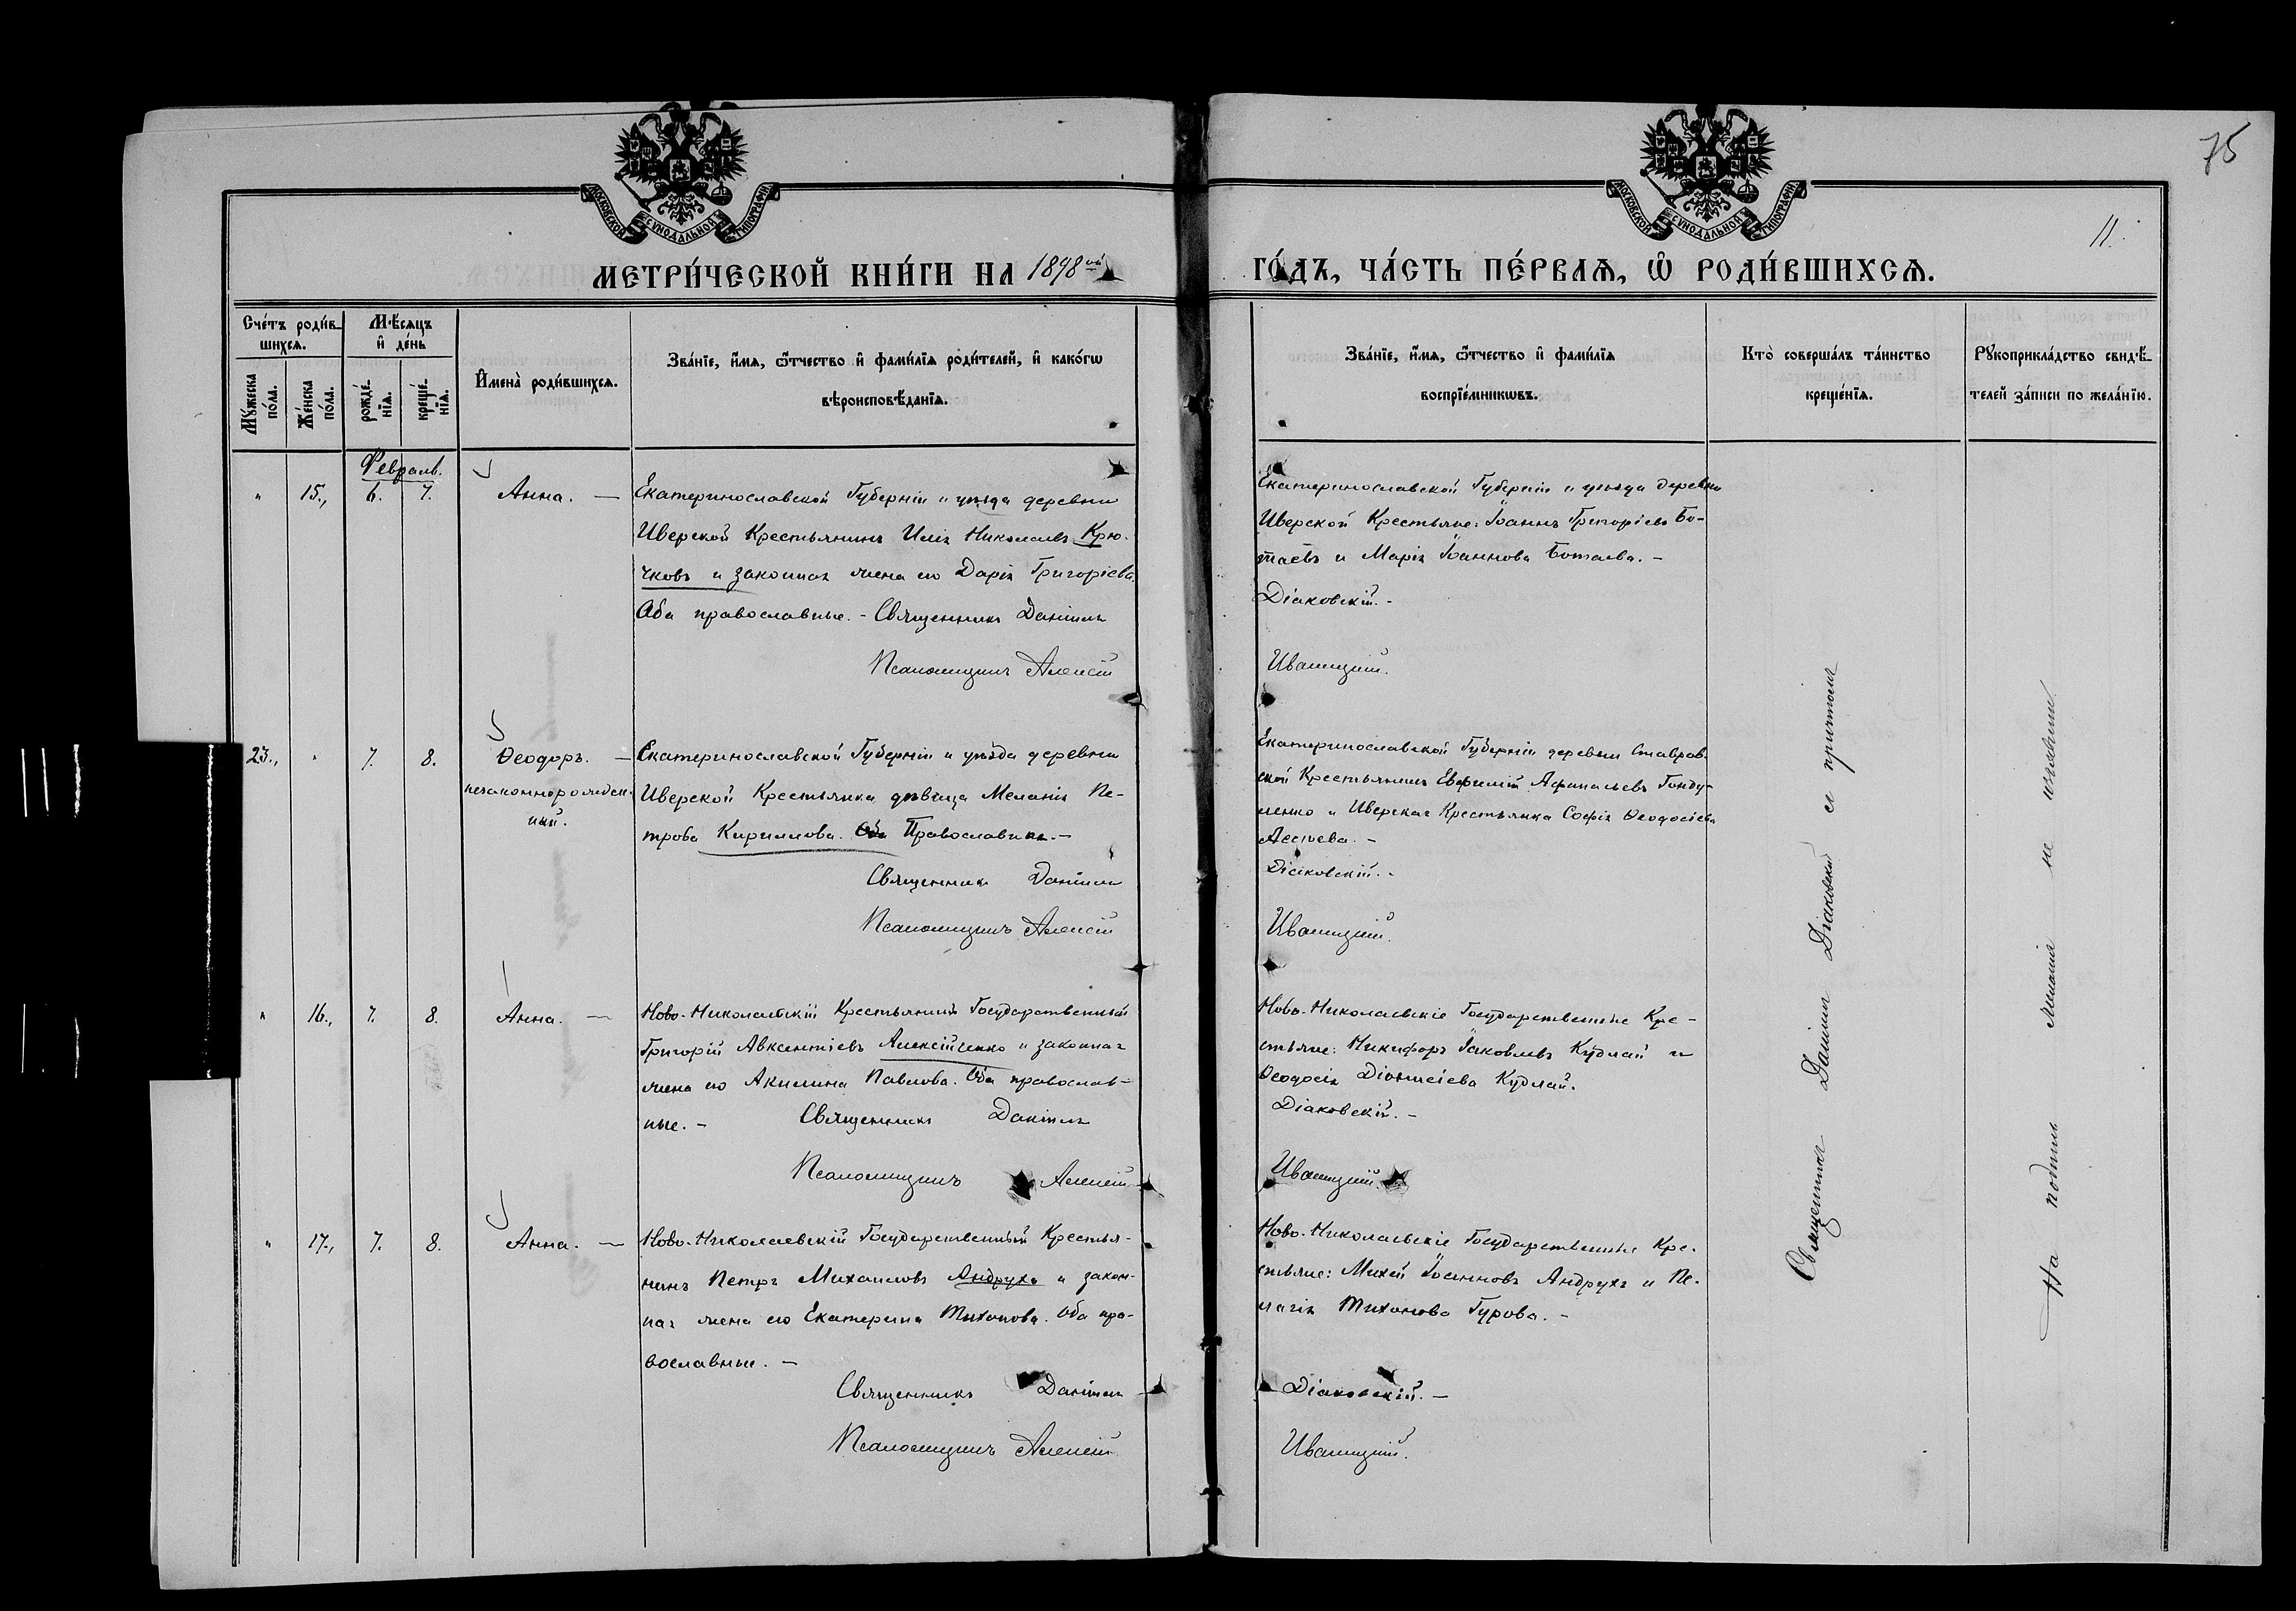 75
11.
МОСКОВСКОЙ СУНОДАЛЬНОЙ ТИПОГРАФІИ
МОСКОВСКОЙ СУНОДАЛЬНОЙ ТИПОГРАФІИ
МЕТРИ́ЧЕСКОЙ КНИ́ГИ НА 1898 ой
ГО́ДЪ, ЧА́СТЬ ПЕ́РВАѦ, Ѡ РОДИ́ВШИХСѦ.
Сче́тъ роди́в-
шихсѧ.
Мѣ́сѧцъ
и҆ де́нь
Мꙋ́жеска
по́ла.
Же́нска
по́ла.
рожде́-
нїѧ.
креще́-
нїѧ.
И҆мена̀ роди́вшихсѧ.
Зва́нїе, и҆́мѧ, ѻ҆́тчество и҆ фами́лїѧ роди́телей, и҆ како́гѡ
вѣроисповѣ́данїѧ.
Зва́нїе, и҆́мѧ, ѻ҆́тчество и҆ фами́лїѧ
воспрїе́мникѡвъ.
Кто̀ соверша́лъ та́инство
креще́нїѧ.
Рꙋкоприкла́дство свидѣ́-
телей за́писи по жела́нїю.
Февраль.
" 15., 6. 7. Анна. —
Екатеринославской Губерніи и уѣзда деревни
Иверской Крестьянинъ Илія Николаевъ Крю-
чковъ и законная жена его Дарія Григоріева.
Оба православные. - Священникъ Даніилъ
Псаломщикъ Алексій
Екатеринославской Губерніи и уѣзда деревни
Иверской Крестьяне: Іоаннъ Григоріевъ Бо-
таевъ и Марія Іоаннова Ботаева. -
Діаковскій. -
Иваницкій.
23., " 7. 8. Ѳеодоръ. —
незаконнорожден-
ный.
Екатеринославской Губерніи и уѣзда деревни
Иверской Крестьянка дѣвица Меланія Пе-
трова Кириллова. Православная. -
Священникъ Даніилъ
Псаломщикъ Алексій
Екатеринославской Губерніи деревни Ставров-
ской Крестьянинъ Евфимій Афанасьевъ
и Иверская Крестьянка Софія Ѳеодосіева
Діаковскій. -
Иваницкій.
" 16., 7. 8. Анна. —
Ново-Николаевскій Крестьянинъ Государственный
Григорій Авксентіевъ Алексѣенко и законная
жена его Акилина Павлова. Оба православ-
ные. - Священникъ Даніилъ
Псаломщикъ Алексій
Ново-Николаевскіе Государственные Кре-
стьяне: Никифоръ Іаковлевъ Кудлай и
Ѳеодосія Діонисіева Кудлай.
Діаковскій. -
Иваницкій.
" 17., 7. 8. Анна. —
Ново-Николаевскій Государственный Крестья-
нинъ Петръ Михаиловъ Андруха и закон-
ная жена его Екатерина Тихонова. Оба пра-
вославные. -
Священникъ Даніилъ
Псаломщикъ Алексій
Ново-Николаевскіе Государственные Кре-
стьяне: Михей Іоанновъ Андруха и Пе-
лагія Тихонова Гурова. -
Діаковскій. -
Иваницкій.
Священникъ Даніилъ Діаковскій съ причтомъ
На подпись желанія не изъявили